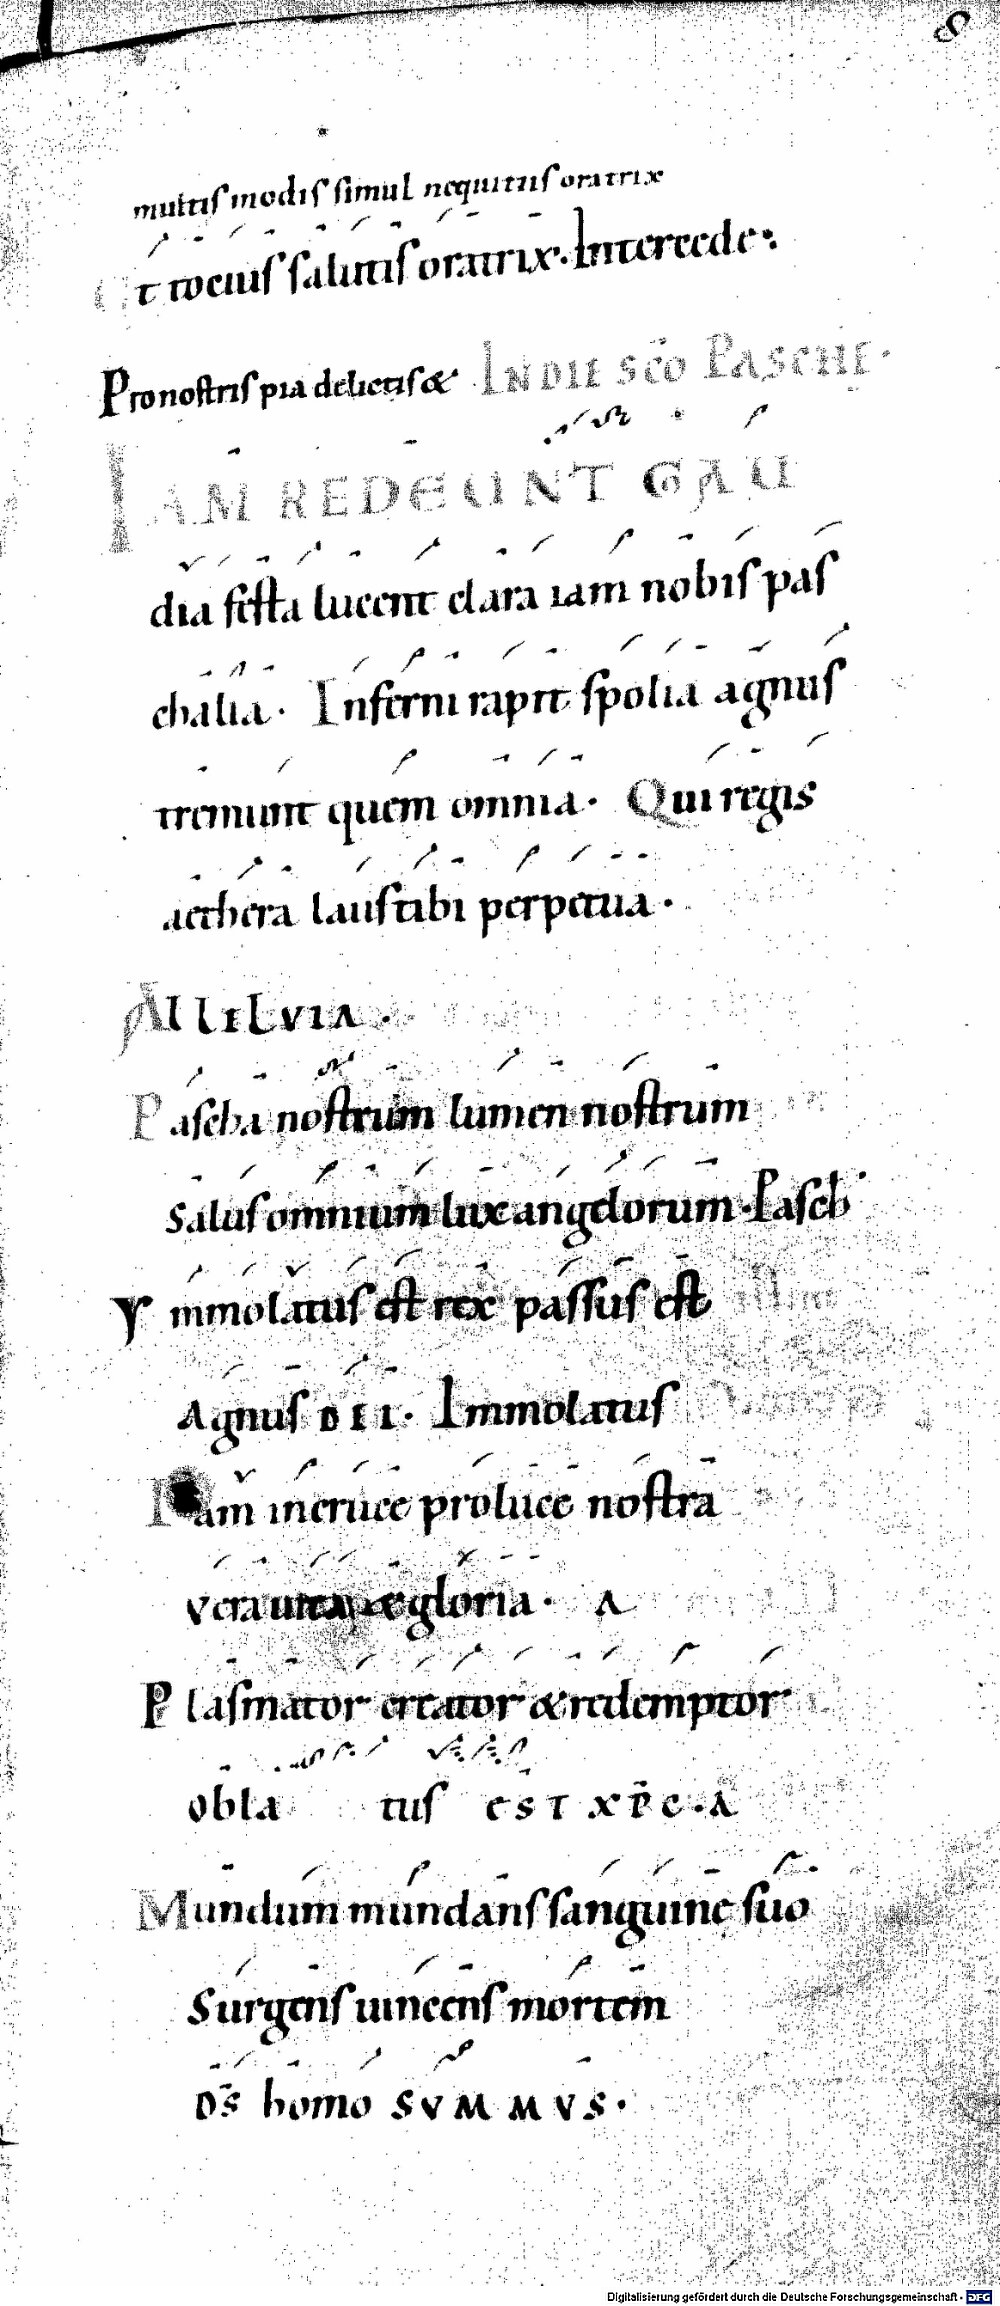 8
multis modis simul nequitiis oratrix
Et tocius salutis oratrix. Intercede:
Pro nostris pia delictis & IN DIE SCO PASCHE.
IAM REDEUNT GAU
dia festa lucent clara iam nobis pas
chalia. Inferni rapit spolia agnus
tremunt quem omnia. Qui regis
aethera laus tibi perpetua.
ALLELVIA.
Pascha nostrum lumen nostrum
salus omnium lux angelorum. Pasch
Y mmolatus est rex passus est
Agnus DEI. Immolatus
Iam in cruce pro luce nostra
vera gloria. A
Plasmator creator & redemptor
obla tus EST XPC. A
Mundum mundans sanguine suo
Surgens uincens mortem
DS homo SVMMVS.
Digitalisierung gefördert durch die Deutsche Forschungsgemeinschaft - DFG